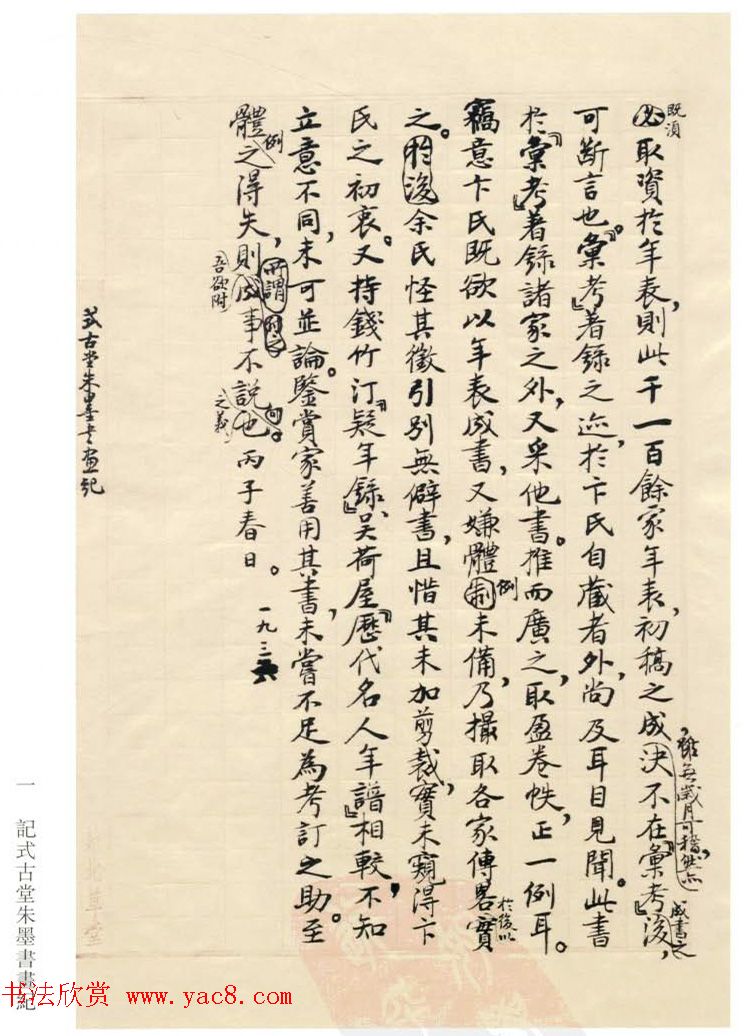 既須
必取資於年表，則此千一百餘家年表，初稿之成決不在『彙考』後，
雖無歲月可稽，然亦
成書之
可斷言也。『彙考』著錄之迹，於卞氏自藏者外，尚及耳目見聞。此書
於『彙考』著錄諸家之外，又采他書。推而廣之，取盈卷帙，正一例耳。
竊意卞氏既欲以年表成書，又嫌體制未備，乃撮取各家傳畧實
例
於後以
之。於後余氏怪其徵引別無僻書，且惜其未加剪裁，實未窺得卞
氏之初衷。又持錢竹汀『疑年錄』、吳荷屋『歷代名人年譜』相較，不知
立意不同，未可並論。鑒賞家善用其書，未嘗不足為考訂之助。至
體之得失，則成事不說也丙子春日。
例
所謂
吾欲附
之義
一九三六
式古堂朱墨書畫紀
一　記式古堂朱墨書畫紀
书法欣赏 www.yac8.com